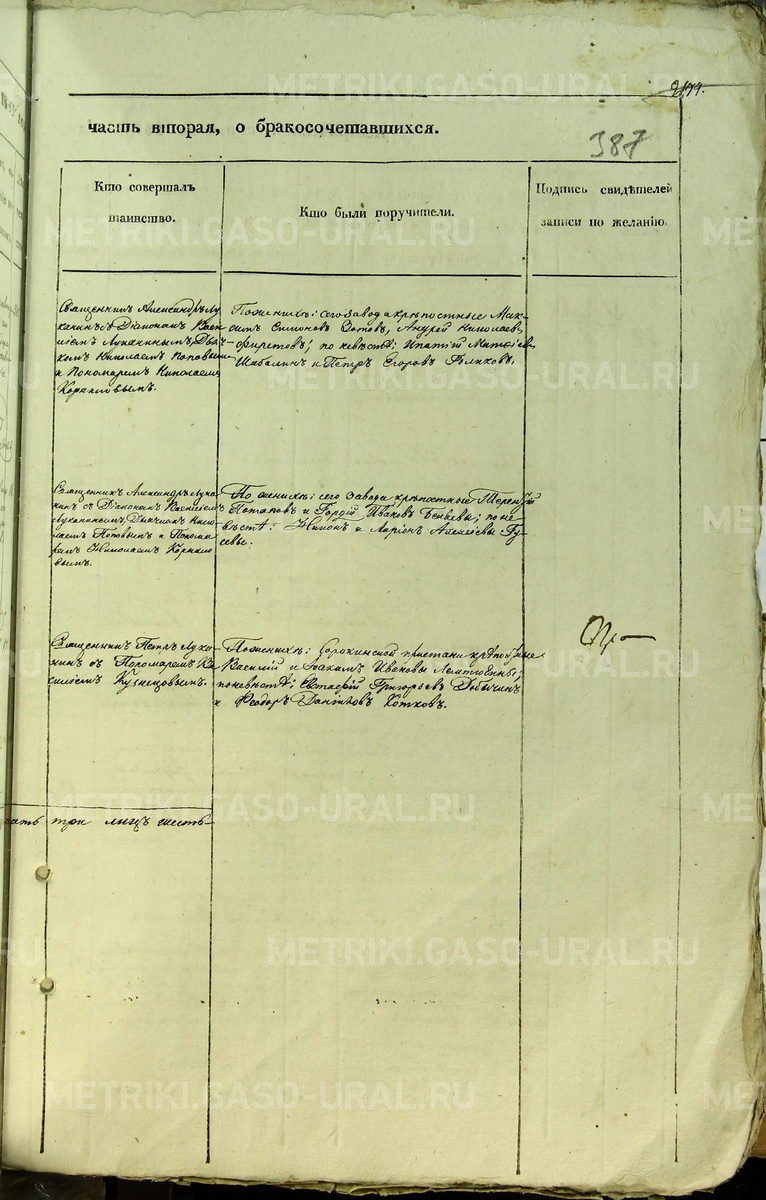 METRIKI.GASO-URAL.RU
часть вторая, о бракосочетавшихся.
387
Кто совершалъ
таинство.
Кто были поручители.
Подпись свидѣтелей
записи по желанію.
Священникъ Александръ Лу
канинъ съ Діакономъ Васи
ліемъ Луканинымъ, Дьяч
комъ Николаемъ Поповымъ
и Пономаремъ Николаемъ
Корниловымъ.
По женихѣ: сего завода крѣпостные Мак
симъ Симоновъ Зотовъ, Андрей Николаевъ
по невѣстѣ: Ипатій Матвѣевъ
Шабалинъ и Петръ Егоровъ
Священникъ Александръ Лука
нинъ съ Діакономъ Василіемъ
Луканинымъ, Дьячкомъ Нико
лаемъ Поповымъ и Понома
ремъ Николаемъ Корнило
вымъ.
По женихѣ: сего завода крѣпостные Терентій
Потаповъ и Гордій Ивановъ по не
вѣстѣ: и Ларіонъ Алексѣевы Гу
севы.
Священникъ Петръ Лука
нинъ съ Пономаремъ Ва
силіемъ Кузнецовымъ.
По женихѣ: Сорокинской пристани крѣпостные
Василій и Іоакимъ Ивановы
по невѣстѣ: Евстафій Григорьевъ Добычинъ
и Феодоръ Даниловъ Котковъ.
три лицъ шесть
METRIKI.GASO-URAL.RU
METRIKI.GASO-URAL.RU
METRIKI.GASO-URAL.RU
METRIKI.GASO-URAL.RU
METRIKI.GASO-URAL.RU